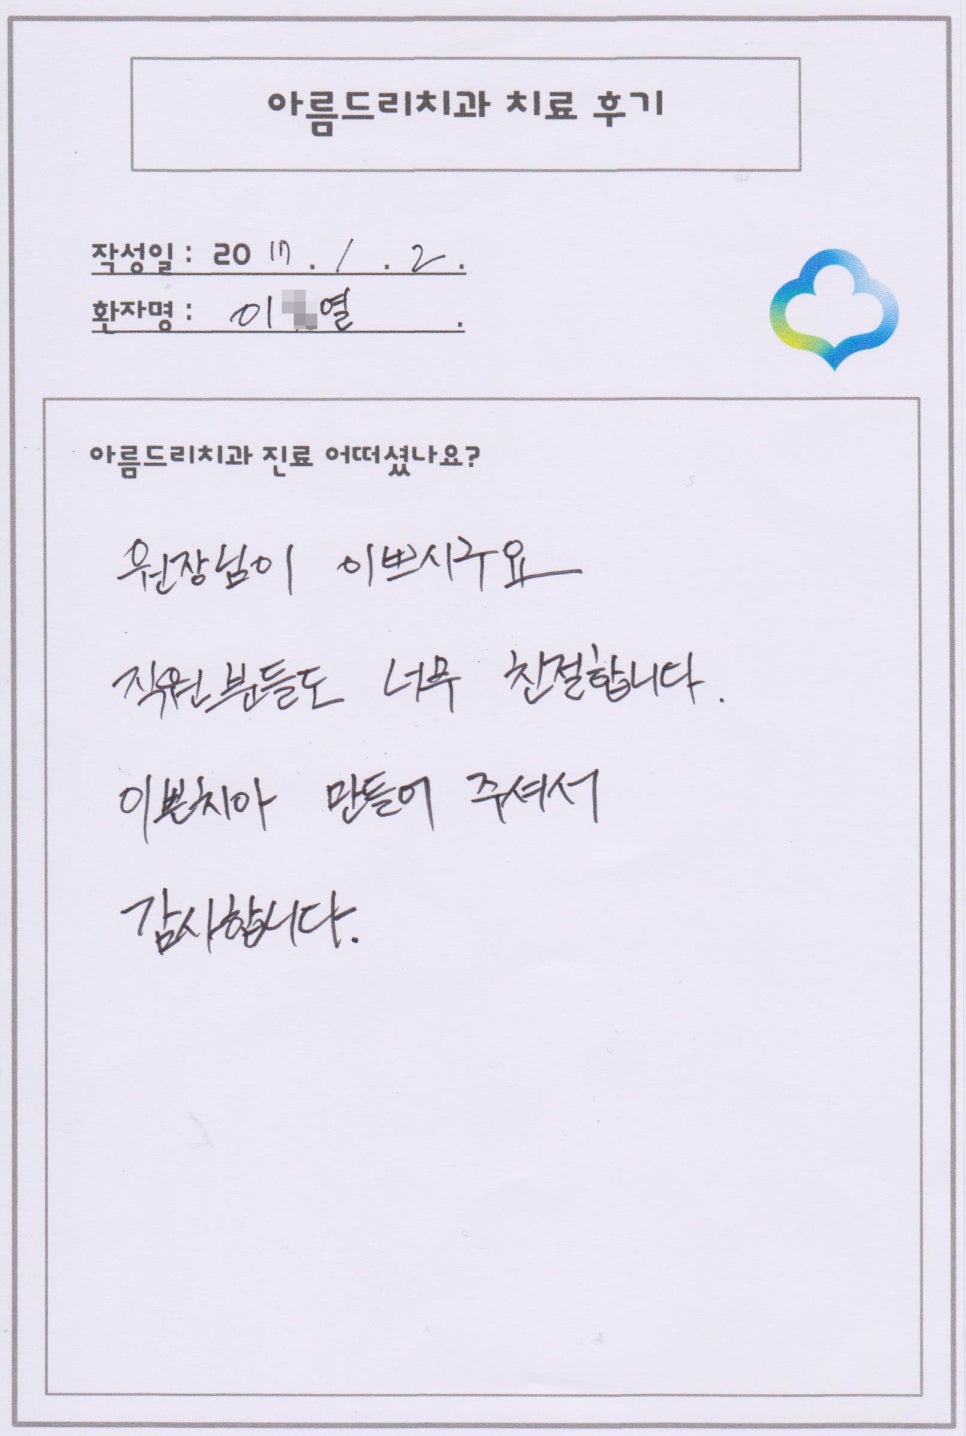 아름드리치과 치료 후기
작성일 : 20 17 . 1 . 2 .
환자명 : 이 열 .
아름드리치과 진료 어떠셨나요?
원장님이 이쁘시구요
직원분들도 너무 친절합니다.
이쁜치아 만들어 주셔서
감사합니다.